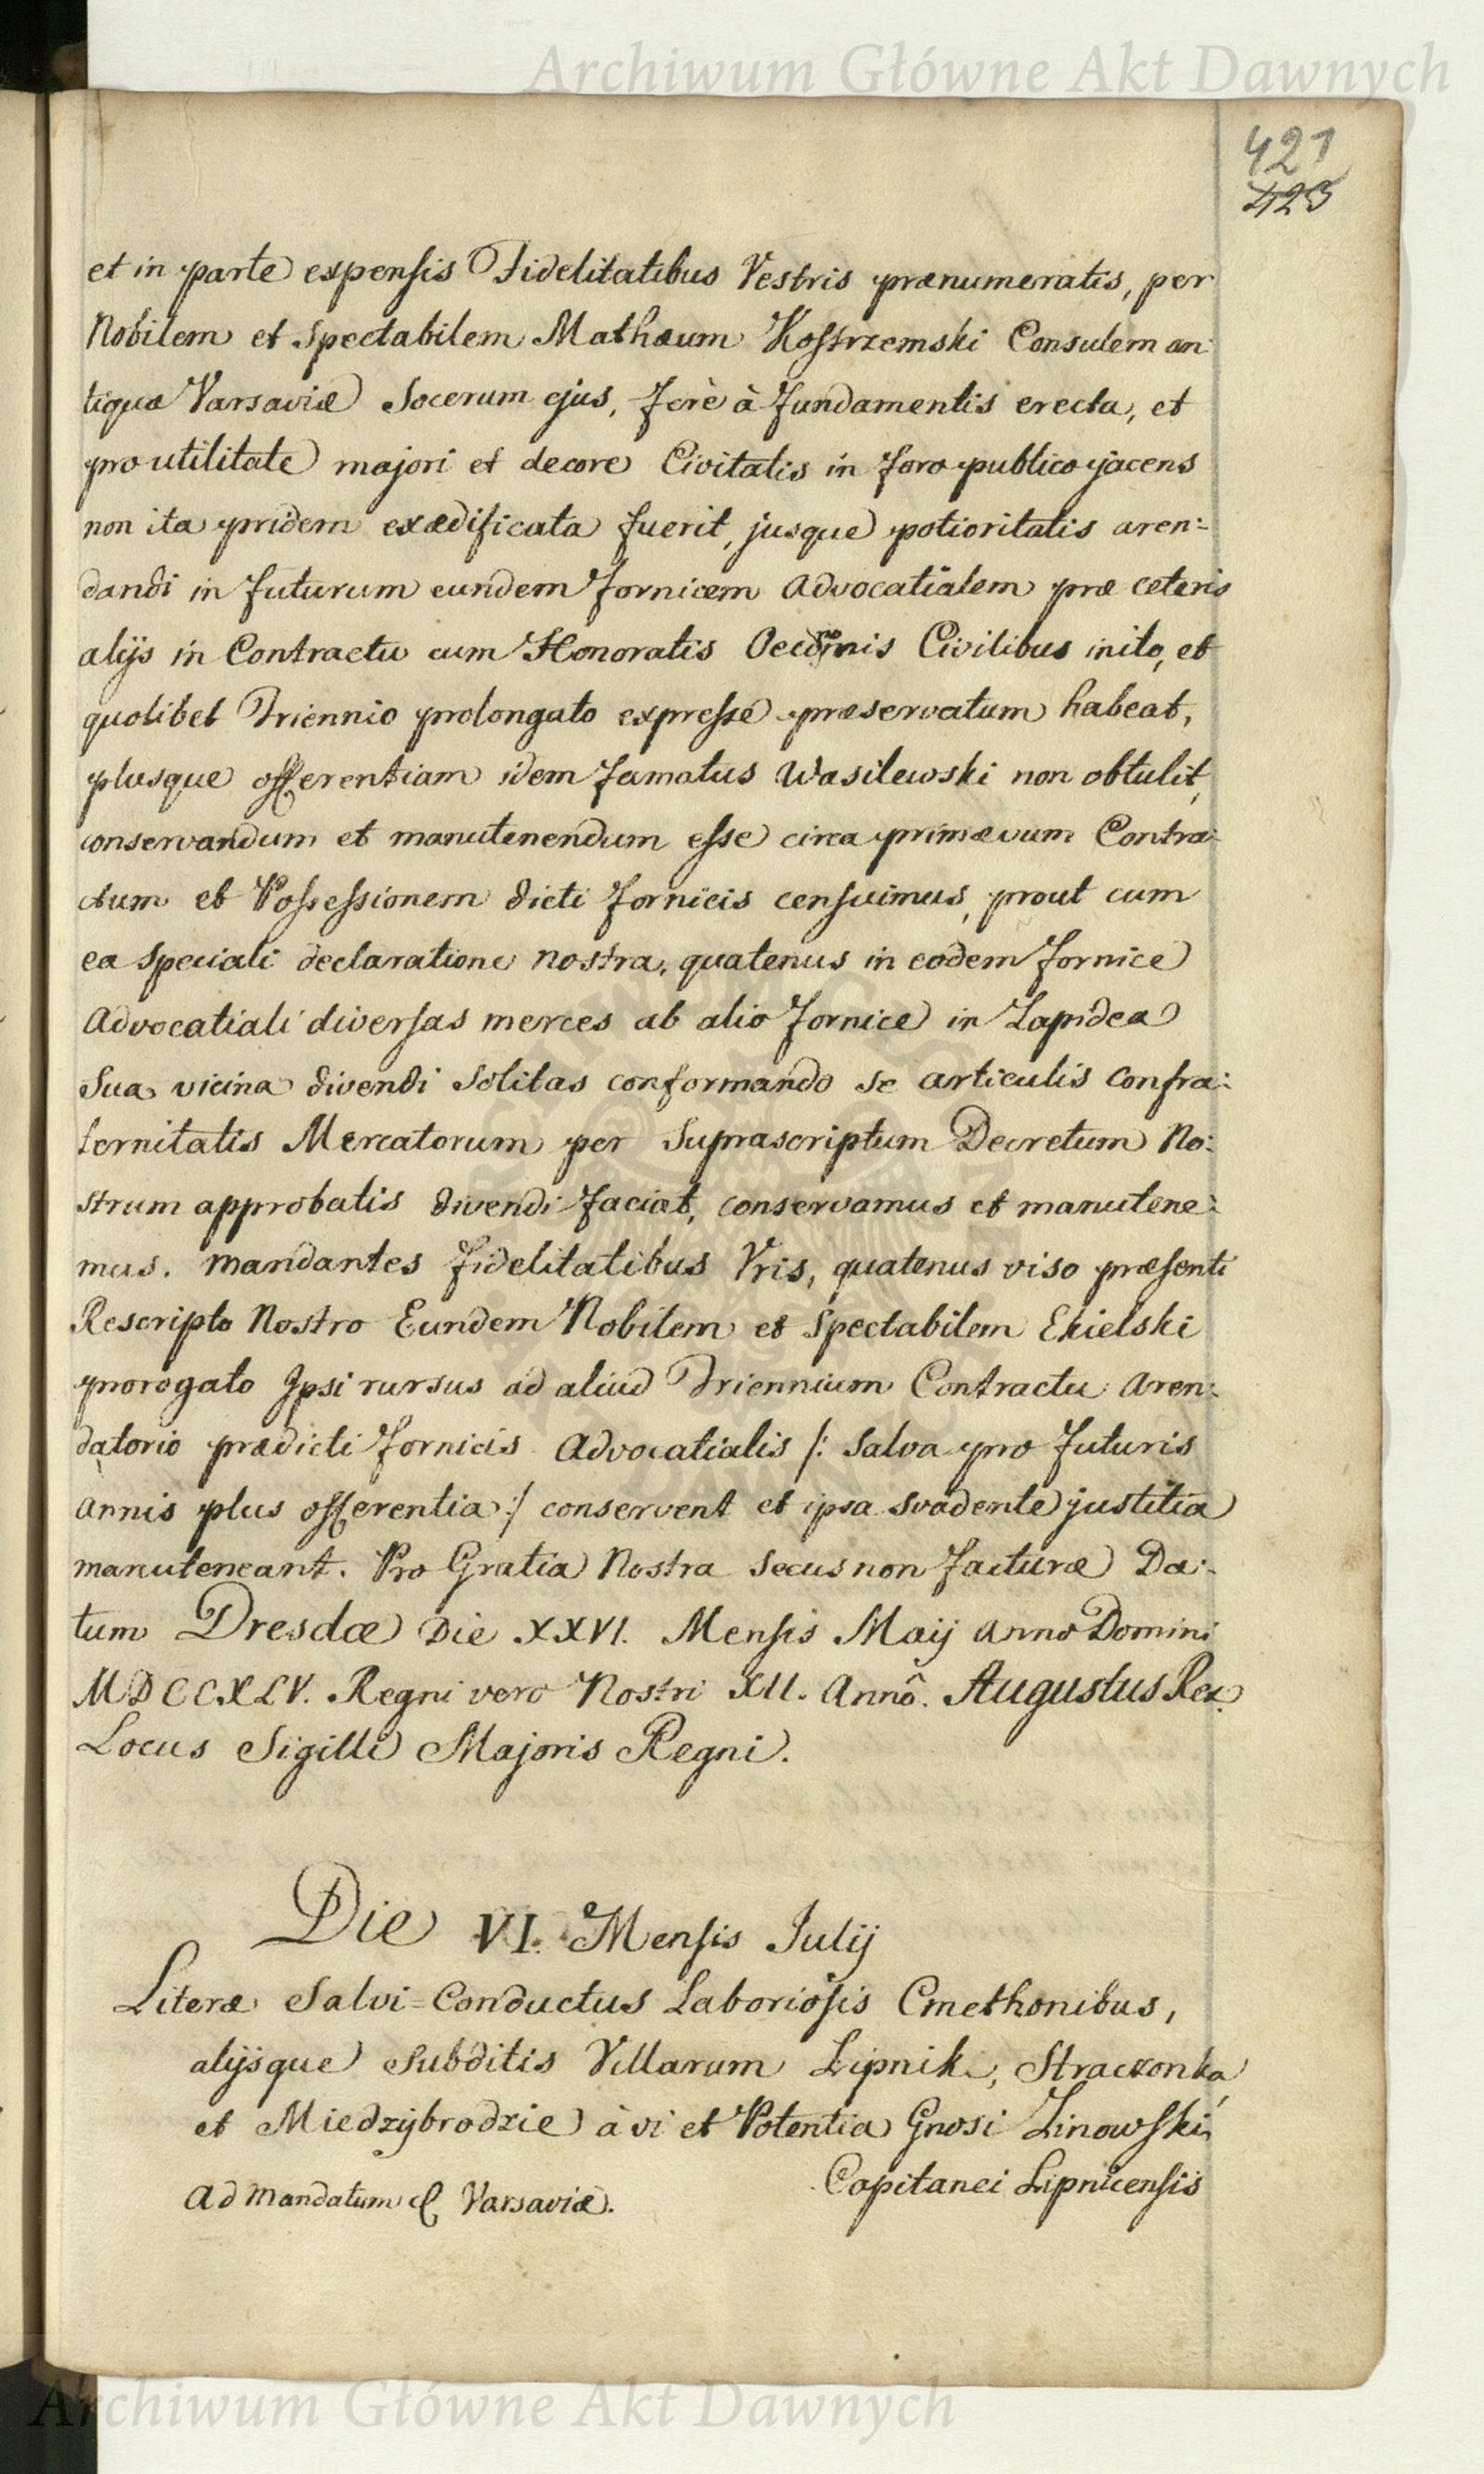 Archiwum Główne Akt Dawnych
421
423
et in parte expensis Fidelitatibus Vestris prænumeratis, per
Nobilem et Spectabilem Mathæum Kostrzemski Consulem an-
tiquæ Varsaviæ Socerum ejus, ferè à fundamentis erecta, et
pro utilitate majori et decore Civitatis in foro publico jacens
non ita pridem exædificata fuerit, jusque potioritatis aren-
dandi in futurum eundem fornicem Advocatialem præ ceteris
alijs in Contractu cum Honoratis Civilibus inito, et
quolibet Triennio prolongato expressé præservatum habeat,
plusque offerentiam idem famatus Wasilewski non obtulit,
conservandum et manutenendum esse circa primævum Contra-
ctum et Possessionem dicti fornicis censuimus, prout cum
ea speciali declaratione nostra, quatenus in eodem fornice
Advocatiali diversas merces ab alio fornice in Lapidea
Sua vicina divendi solitas conformando se articulis Confra-
ternitatis Mercatorum per Suprascriptum Decretum No-
strum approbatis divendi faciat, conservamus et manutene-
mus. Mandantes fidelitatibus Vris, quatenus viso præsenti
Rescripto Nostro Eundem Nobilem et Spectabilem Ekielski
prorogato Ipsi rursus ad aliud Triennium Contractu Aren-
datorio prædicti fornicis Advocatialis /: Salva pro futuris
annis plus offerentia :/ conservent et ipsa svadente justitia
manuteneant. Pro Gratia Nostra Secus non facturæ Da-
tum Dresdæ Die XXVI. Mensis Maij Anno Domini
MDCCXLV. Regni vero Nostri XII. Annô. Augustus Rex
Locus Sigilli Majoris Regni.
Die VI. Mensis Julij
Literæ Salvi=Conductus Laboriosis Cmethonibus,
alijsque Subditis Villarum Lipnik, Straczonka
et Miedzybrodzie à vi et Potentia Gnosi Linowski
Capitanei Lipnicensis
Ad Mandatum Varsaviæ.
Archiwum Główne Akt Dawnych